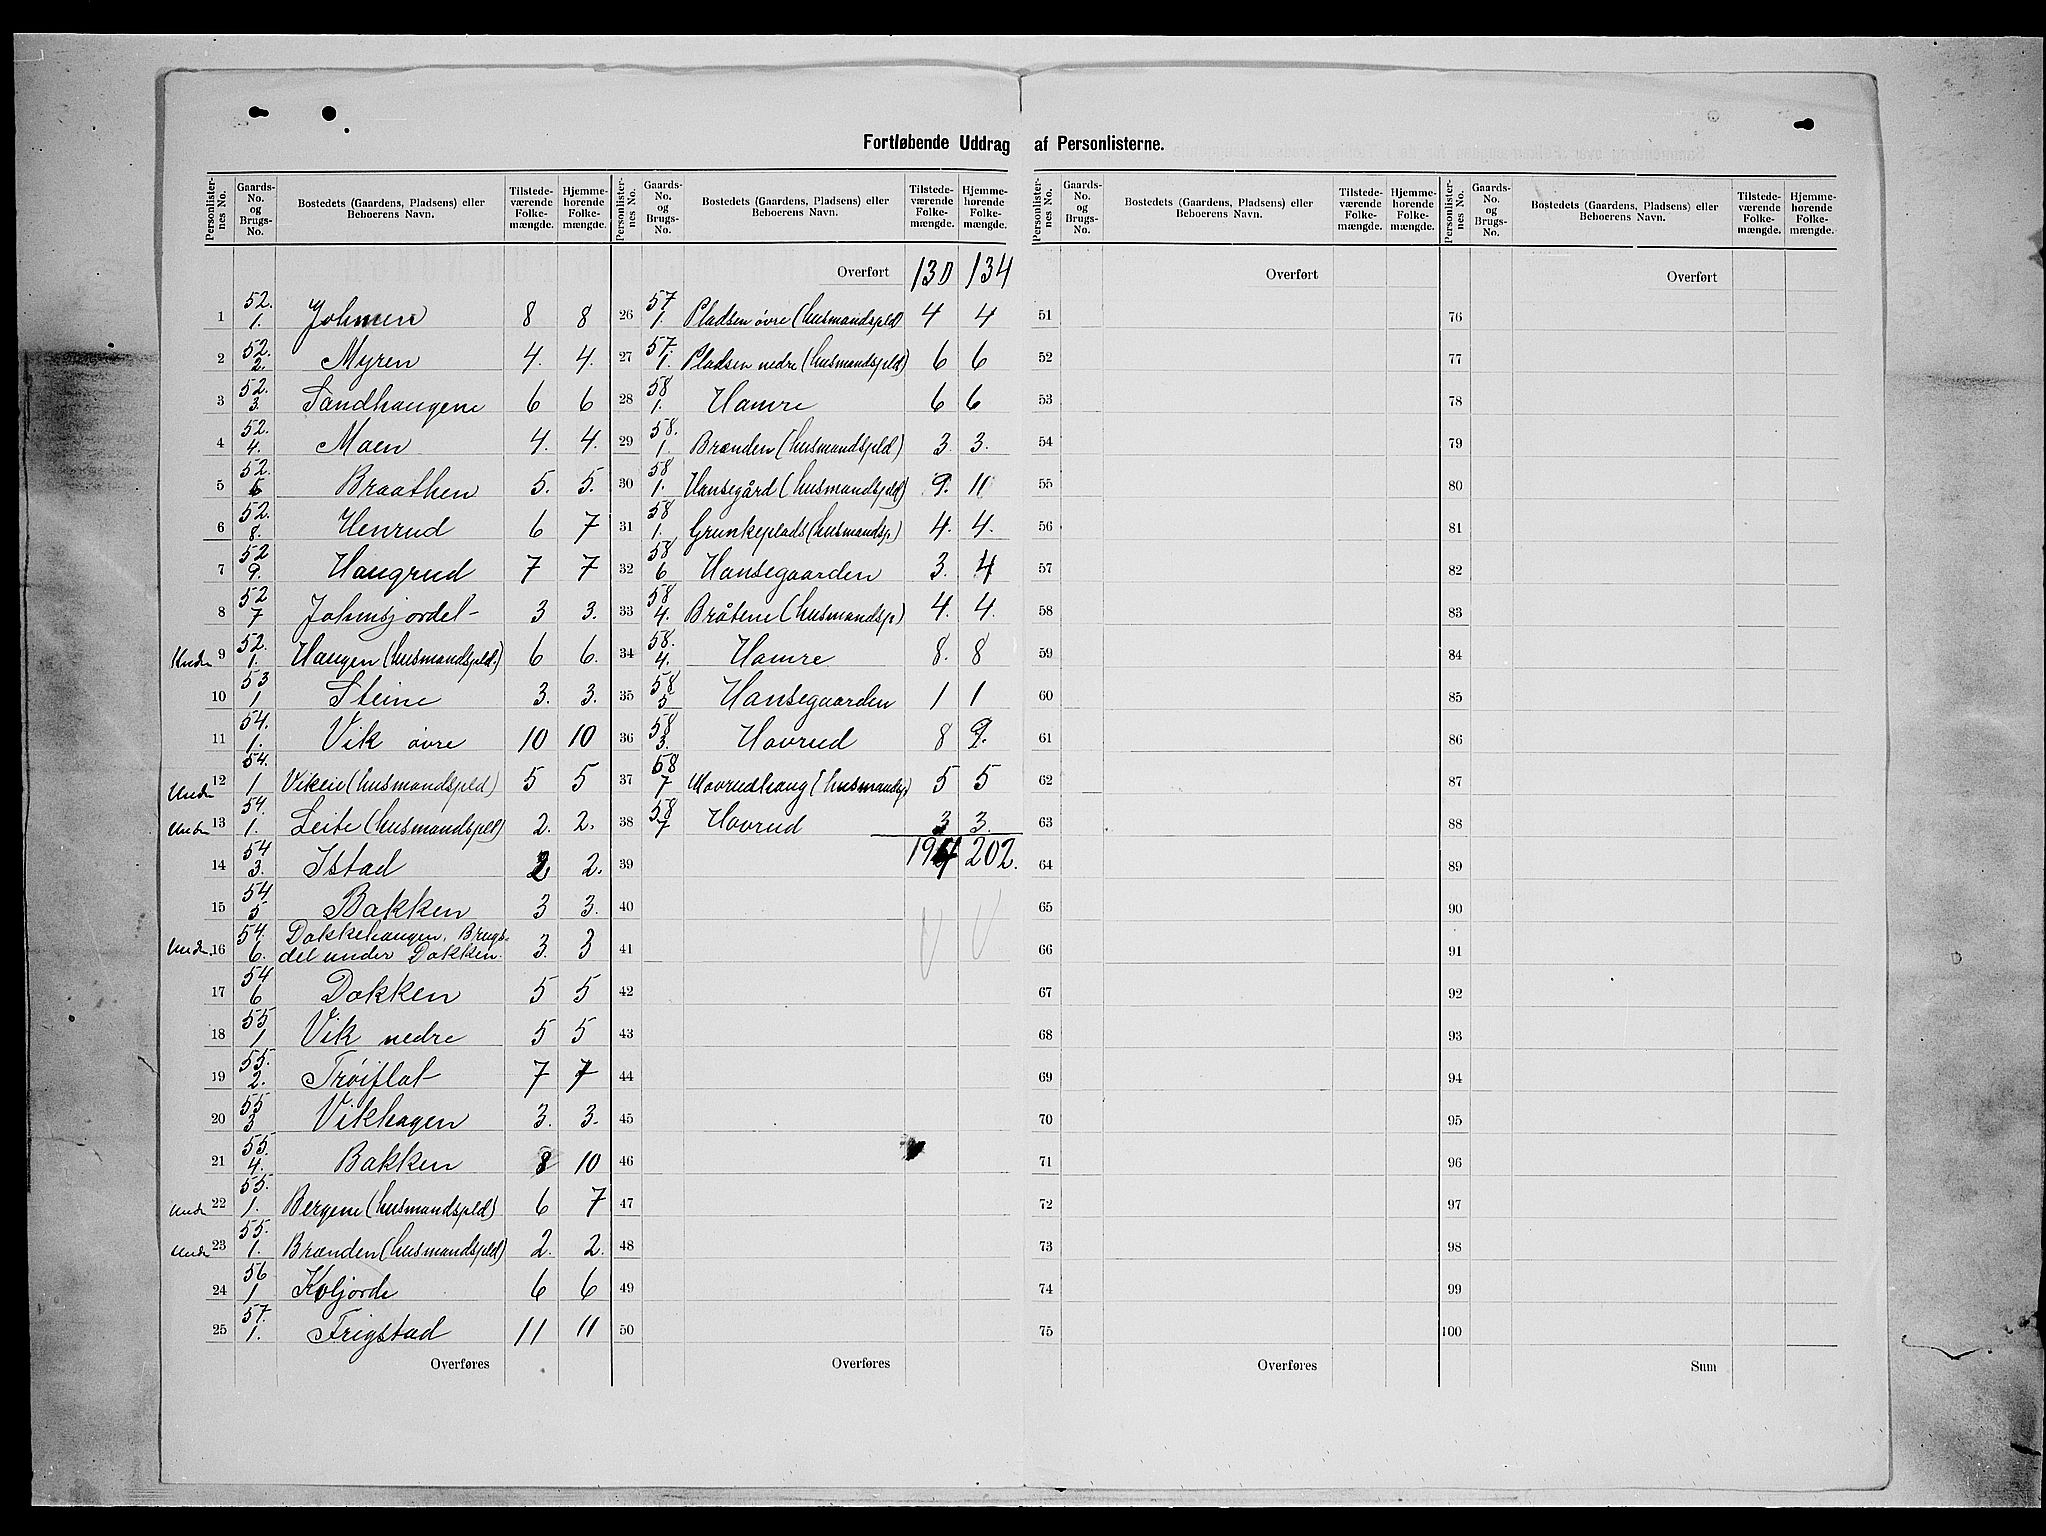 Fortløbende Uddrag af Personlisterne.
Personlister-nes No. | Gaards-No. og Brugs-No. | Bostedets (Gaardens, Pladsens) eller Beboerens Navn. | Tilstede-værende Folke-mængde. | Hjemme-hørende Folke-mængde.
1 52. 1. Johnsen 8 8
2 52. 2. Myren 4. 4.
3 52. 3. Sandhaugene 6 6
4 52. 4. Moen 4. 4.
5 52. 5 Braathen 5. 5.
6 52. 8. Henrud 6 7
7 52 9. Haugrud 7 7
8 52 7 Johnsjordet 3 3.
Under 9 52. 1. Haugen (husmandspld.) 6 6.
10 53 1 Steine 3. 3.
11 54. 1. Vik øvre 10 10
Under 12 54. 1 Vikeie (husmandspld) 5 5
Under 13 54. 1. Leite (husmandspld) 2. 2.
14 54 3. Istad 2 2.
15 54 5 Bakken 3 3.
Under 16 54. 6. Dokkehaugen, Brugs-
del under Dokken. 3. 3
17 54 6 Dokken 5 5
18 55 1 Vik nedre 5 5
19 55. 2. Trøiflat 7 7
20 55 3 Vikhagen 3. 3.
21 55. 4. Bakken 8 10
Under 22 55. 1. Bergene (husmandspld) 6 7
Under 23 55. 1. Brænden (husmandspld) 2. 2.
24 56 1 Koljorde 6 6
25 57. 1. Frigstad 11 11
Overføres
Personlister-nes No. | Gaards-No. og Brugs-No. | Bostedets (Gaardens, Pladsens) eller Beboerens Navn. | Tilstede-værende Folke-mængde. | Hjemme-hørende Folke-mængde.
Overført 130 134
26 57 1. Pladsen øvre (husmandspld) 4 4
27 57. 1. Pladsen nedre (husmandspld) 6 6
28 58 1. Hamre 6 6
29 58. 1. Brænden (husmandspld) 3 3.
30 58 1. Hansegård (husmandspld) 9. 11
31 58 1. Grunkeplads (husmandsp.) 4. 4.
32 58 6 Hansegaarden 3. 4
33 58 4. Bråtene (husmandsp.) 4. 4.
34 58. 4. Hamre 8. 8
35 58 5 Hansegaarden 1 1
36 58 3. Hovrud 8 9.
37 58 7 Hovrudhaug (husmandsp.) 5 5
38 58 7 Hovrud 3 3.
39 194 202.
40
41
42
43
44
45
46
47
48
49
50
Overføres
Personlister-nes No. | Gaards-No. og Brugs-No. | Bostedets (Gaardens, Pladsens) eller Beboerens Navn. | Tilstede-værende Folke-mængde. | Hjemme-hørende Folke-mængde.
Overført
51
52
53
54
55
56
57
58
59
60
61
62
63
64
65
66
67
68
69
70
71
72
73
74
75
Overføres
Personlister-nes No. | Gaards-No. og Brugs-No. | Bostedets (Gaardens, Pladsens) eller Beboerens Navn. | Tilstede-værende Folke-mængde. | Hjemme-hørende Folke-mængde.
Overført
76
77
78
79
80
81
82
83
84
85
86
87
88
89
90
91
92
93
94
95
96
97
98
99
100
Sum